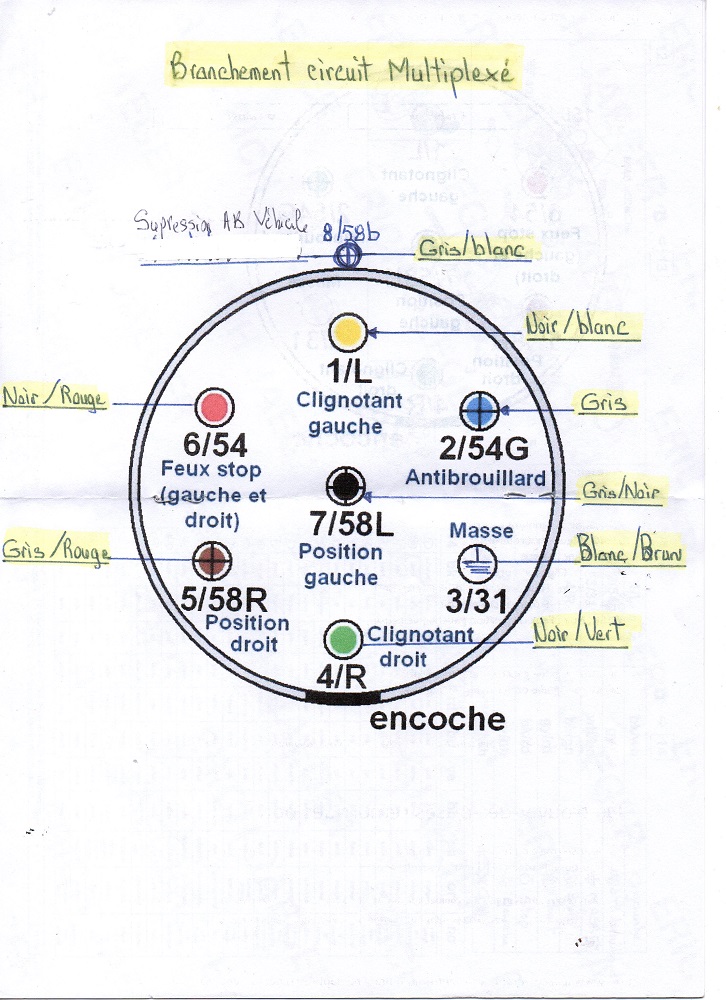 Branchement circuit Multiplexé
Supression AB Véhicule
8/58b
Gris/blanc
Noir/blanc
1/L
Clignotant
gauche
Noir/Rouge
Gris
6/54
Feux stop
(gauche et
droit)
2/54G
Antibrouillard
Gris/Noir
7/58L
Position
gauche
Masse
Blanc/Brun
Gris/Rouge
5/58R
Position
droit
3/31
Noir/Vert
Clignotant
droit
4/R
encoche